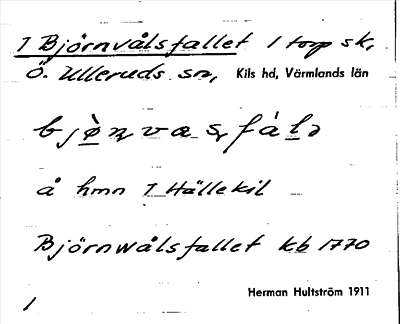 1 Björnvålsfallet 1 torp sk,
Ö. Ulleruds sn, Kils hd, Värmlands län
å hmn 1 Hällekil
Björnwålsfallet kb 1770
1 Herman Hultström 1911